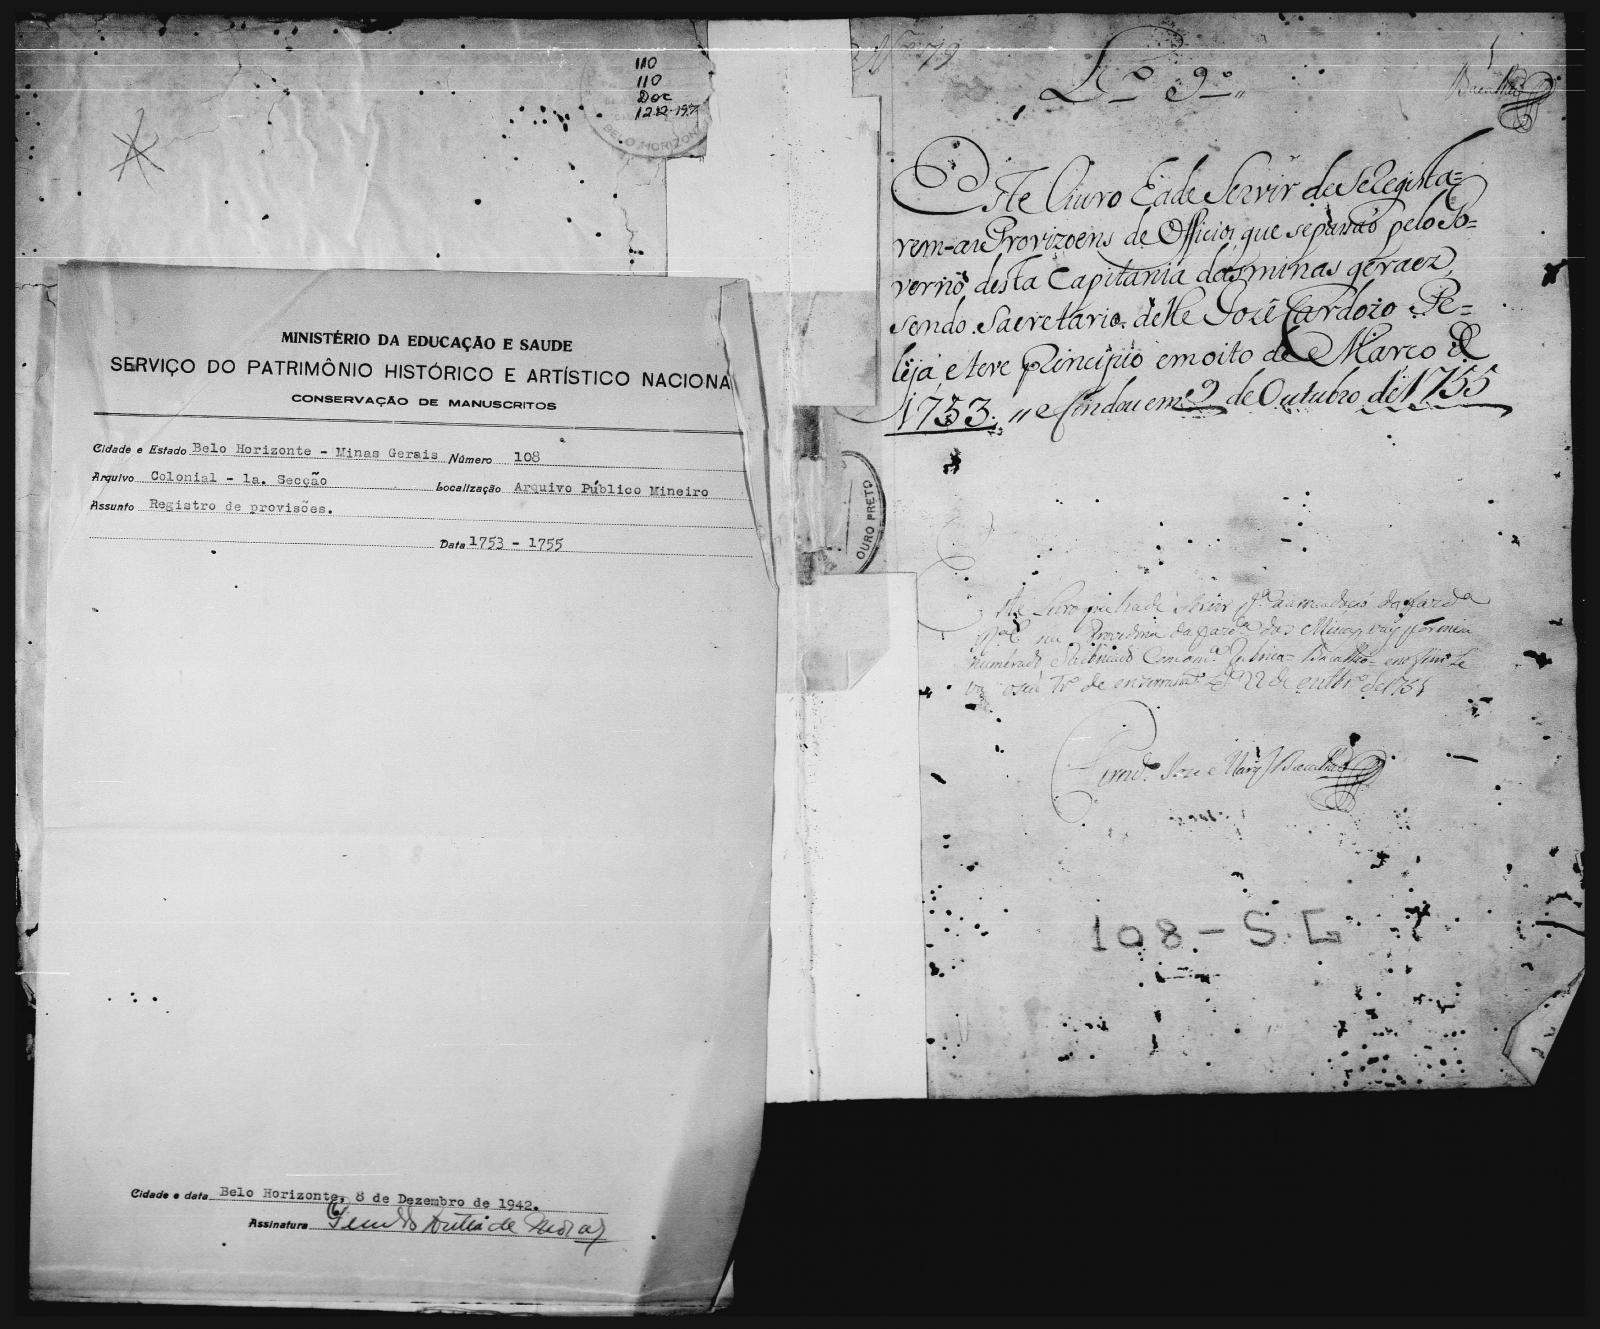 110
110
Doc
BELO HORIZON
MINISTÉRIO DA EDUCAÇÃO E SAUDE
SERVIÇO DO PATRIMÔNIO HISTÓRICO E ARTÍSTICO NACIONA
CONSERVAÇÃO DE MANUSCRITOS
Cidade e Estado Belo Horizonte - Minas Gerais Número 108
Arquivo Colonial - 1a. Secção Localização Arquivo Público Mineiro
Assunto Registro de provisões.
Data 1753 - 1755
Cidade e data Belo Horizonte, 8 de Dezembro de 1942.
Assinatura
OURO PRETO
79
L.º 9.º
Bacalhao
Este Livro Eade Servir de se Regista=
rem-as Provizoens de Officios, que se pasaó pelo Go=
verno desta Capitania das minas geraez,
sendo Sacretario delle José Cardozo Pe=
leja, e teve Principio em oito de Março de
1753. " e findou em 9 de Outubro de 1755
da Fazd.ª
Provedoria da fazd.ª das Minas, vay
numerado Rubricado Com am.ª Rubrica= Bacalhao= eno fim Le
va oseu de 22 de 1751
108 - S. G